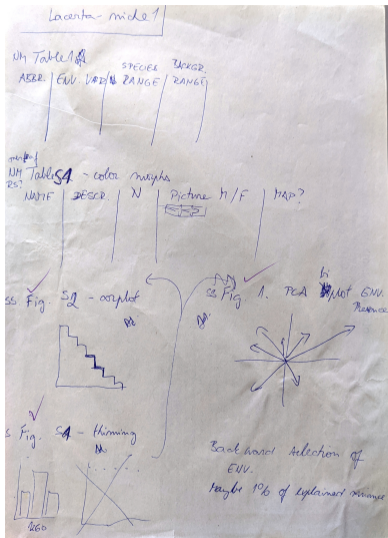 Lacerta - niche 1
NM Table 1
SPECIES BACKGR.
ABBR. ENV. VAR RANGE RANGE
NM Table S1 - color morphs
RS?
NAME DESCR. N Picture M/F MAP?
ss Fig. S2 - corplot
ss Fig 1. PCA biplot ENV.
s Fig. S1 - thinning
KGO
Backward selection of
ENV.
Maybe 1% of explained variance